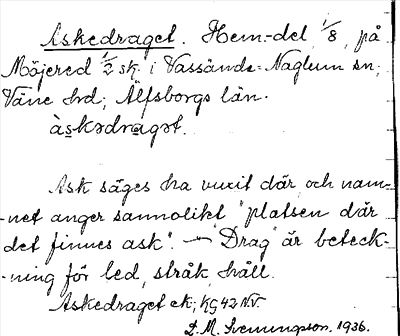 Askedraget. Hem-del 1/8, på
Möjered 1/2 sk. i Vassända-Naglum sn;
Väne hrd; Älfsborgs län.
àskədragət.
Ask säges ha vuxit där, och nam-
-net anger sannolikt "platsen där
det finnes ask". — "Drag" är beteck-
-ning för led, stråk, håll.
Askedraget ek; kg 42 NV.
D. M. Svenningson. 1936.